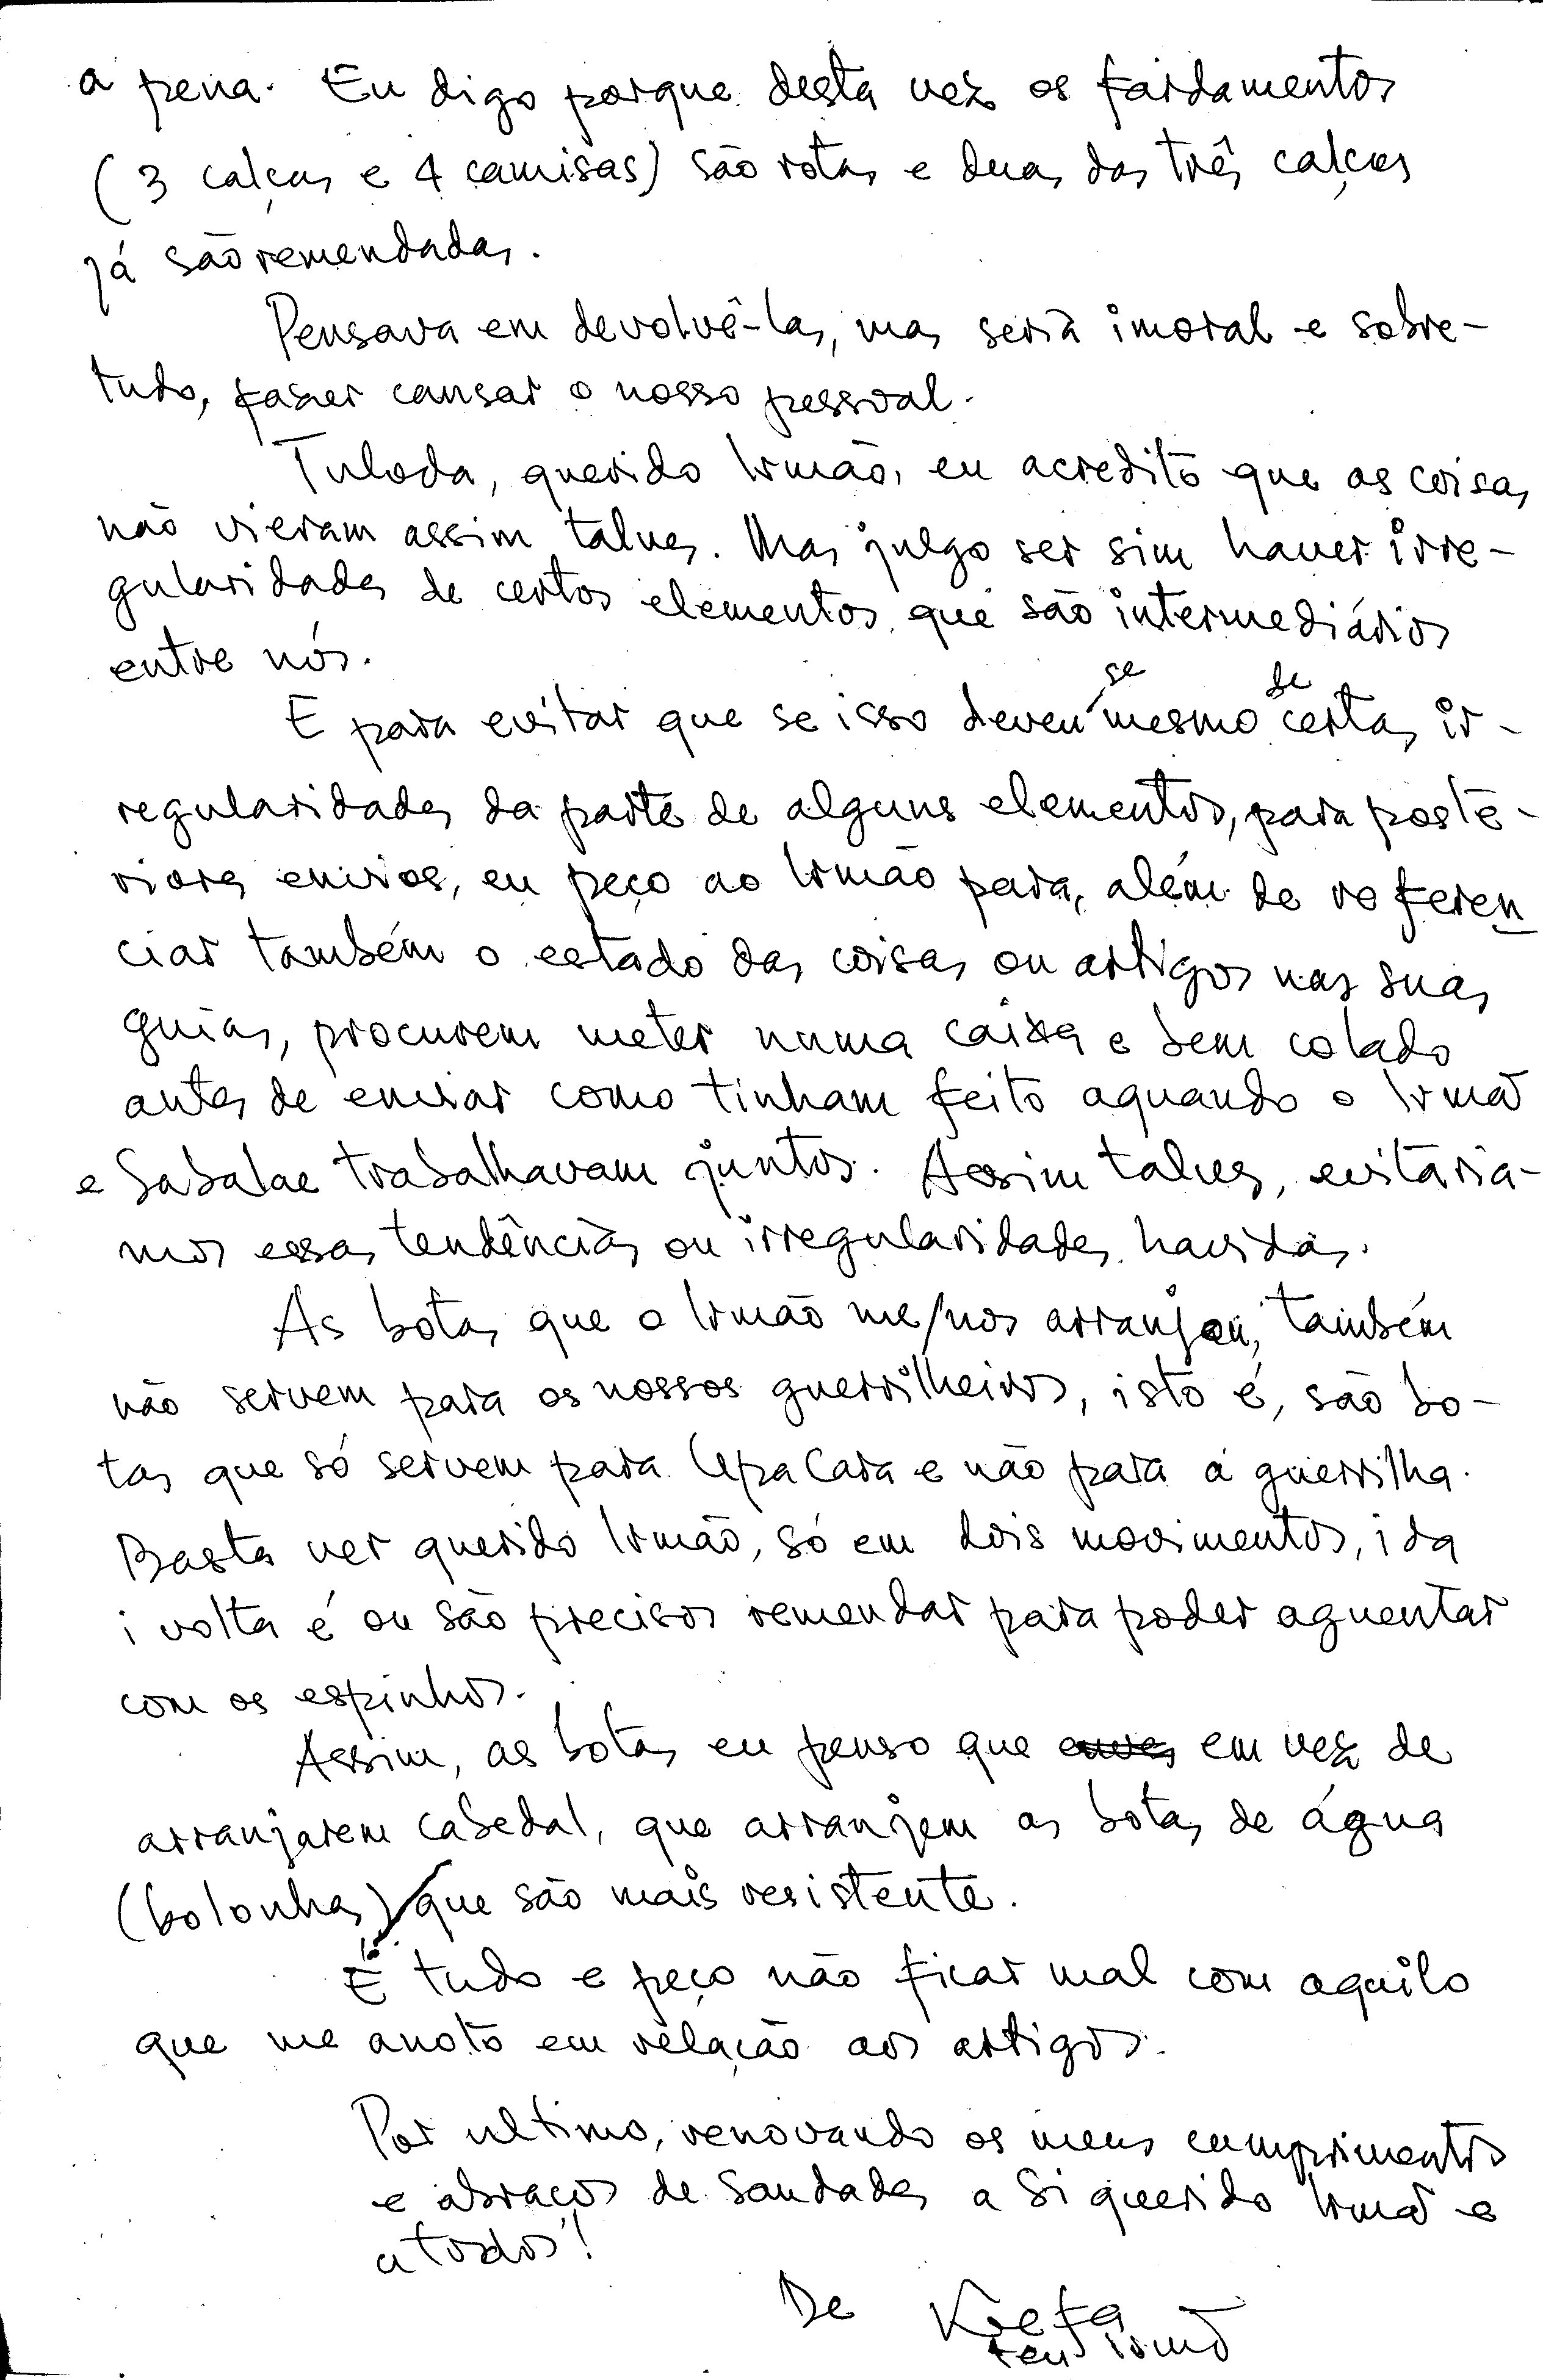 a pena. Eu digo porque desta vez os fardamentos
(3 calças e 4 camisas) são rotas e duas das três calças
já são remendadas.
Pensava em devolvê-las, mas seria imoral e sobre-
tudo, fazer cansar o nosso pessoal.
Tuloda, querido Irmão, eu acredito que as coisas
não vieram assim talvez. Mas julgo ser sim haver irre-
gularidades de certos elementos que são intermediários
entre nós.
E para evitar que se isso deveu se mesmo de certas ir-
regularidades da parte de alguns elementos, para poste-
riores envios, eu peço ao Irmão para, além de referen
ciar também o estado das coisas ou artigos nas suas
guias, procurem meter numa caixa e bem colado
antes de enviar como tinham feito aquando o Irmão
e Sabalae trabalhavam juntos. Assim talvez, evitaria-
mos essas tendências ou irregularidades havidas.
As botas que o Irmão me/nos arranjou, também
não servem para os nossos guerrilheiros, isto é, são bo-
tas que só servem para Upacara e não para a guerrilha.
Basta ver querido Irmão, só em dois movimentos, ida
i volta é ou são precisos remendar para poder aguentar
com os espinhos.
Assim, as botas eu penso que em vez de
arranjarem cabedal, que arranjem as botas de água
(bolonhas) que são mais resistente.
É tudo e peço não ficar mal com aquilo
que me anoto em relação aos artigos.
Por ultimo, renovando os meus cumprimentos
e abraços de saudades a si querido Irmão e
a todos!
De Keta
teu irmão